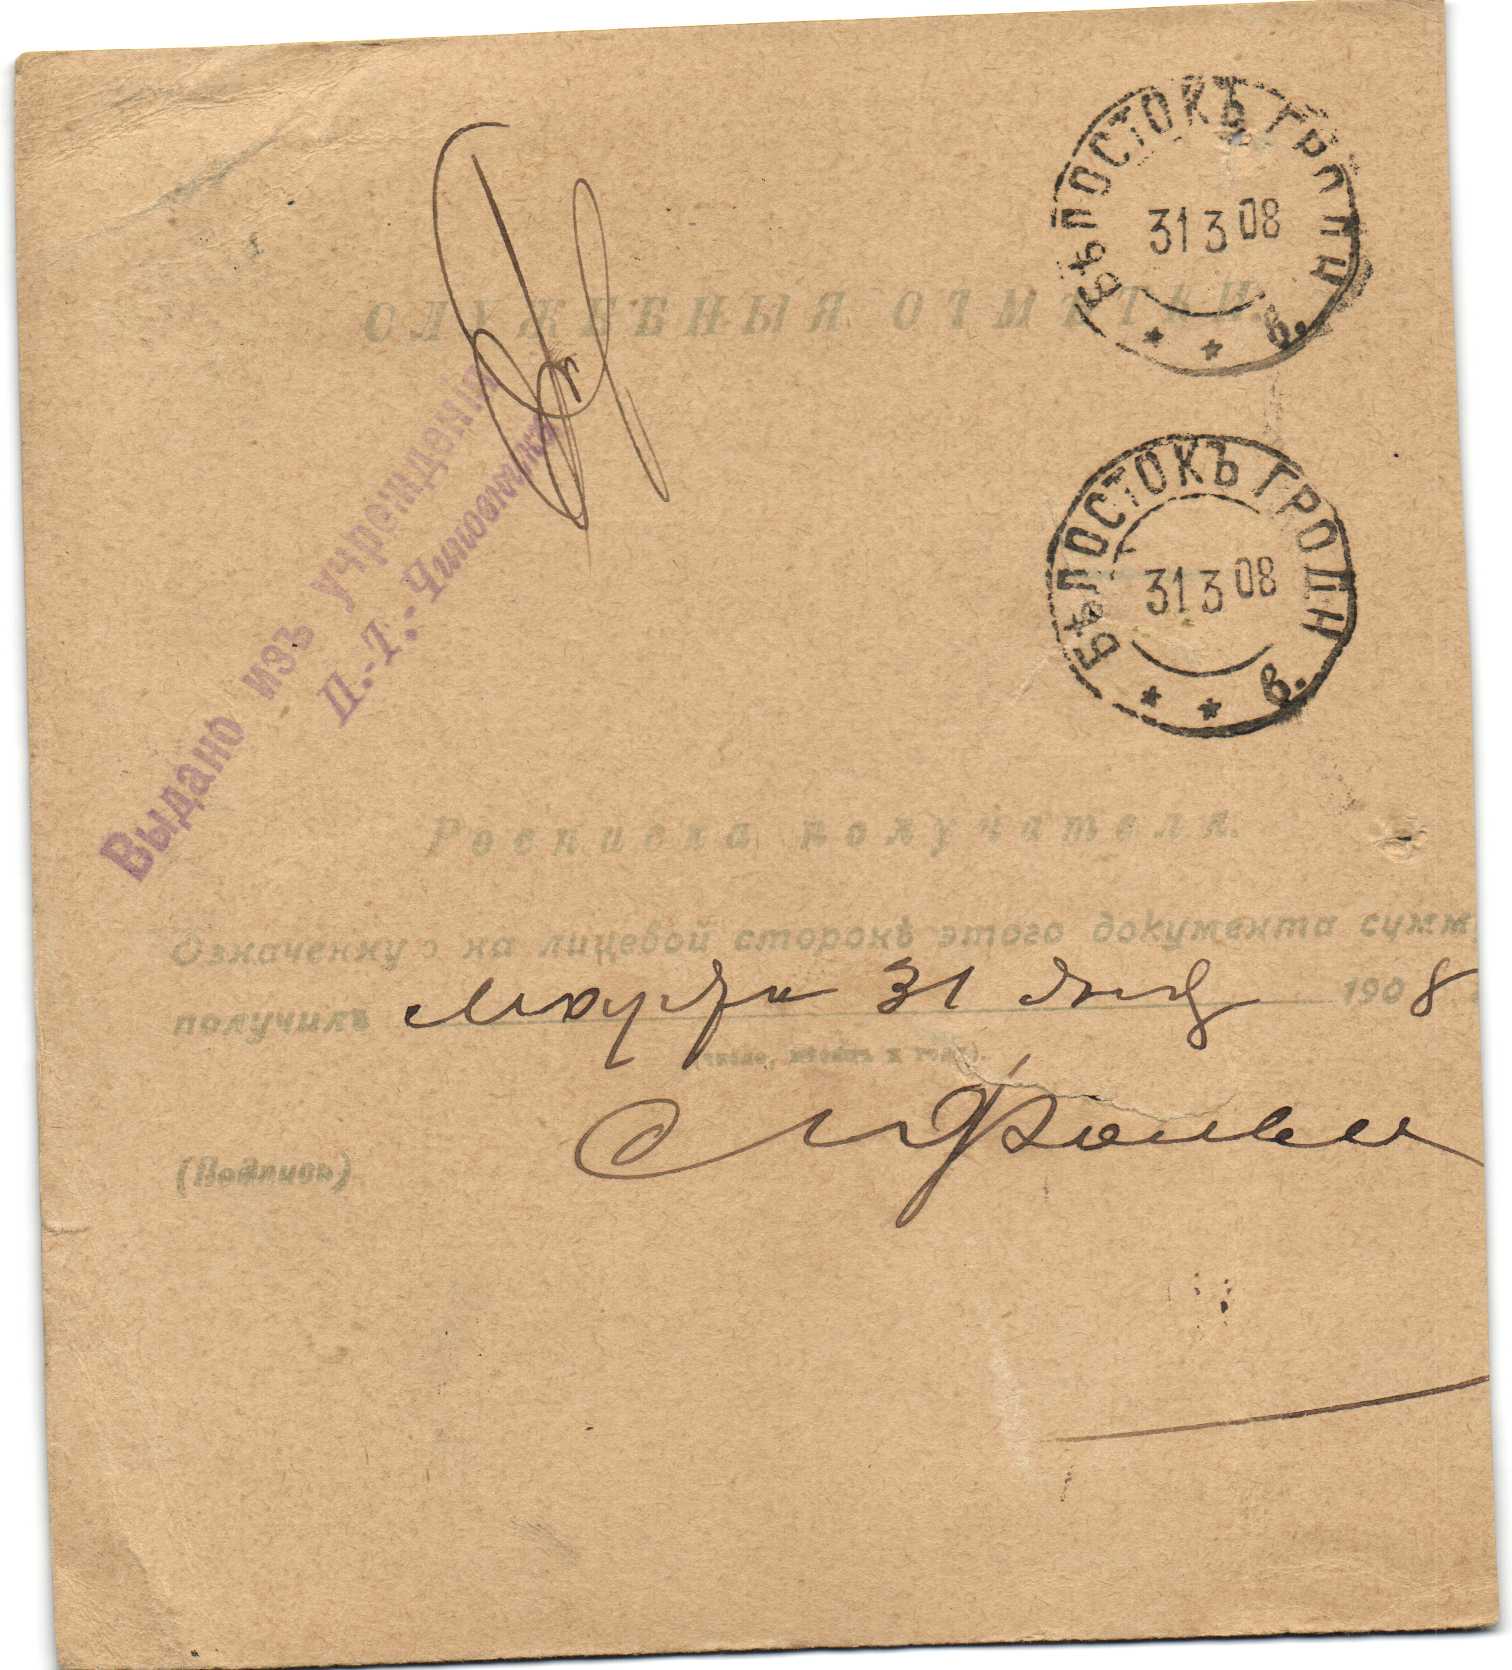 БѢЛОСТОКЪ ГРОДН
31 3 08
в.
СЛУЖЕБНЫЯ ОТМѢТКИ.
БѢЛОСТОКЪ ГРОДН
31 3 08
в.
Выдано изъ учрежденія
П.-Т.-Чиновника
Росписка получателя.
Означенную на лицевой сторонѣ этого документа сумму
получилъ марта 31 дня 1908
(число, мѣсяцъ и годъ).
(Подпись)